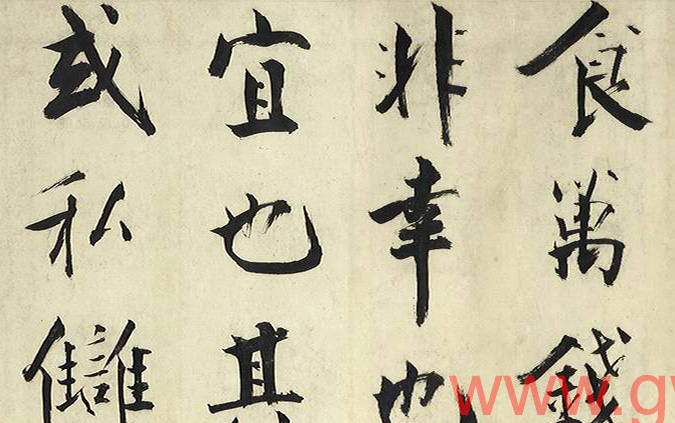 食萬錢
非幸也
宜也其
或私讎
www.g